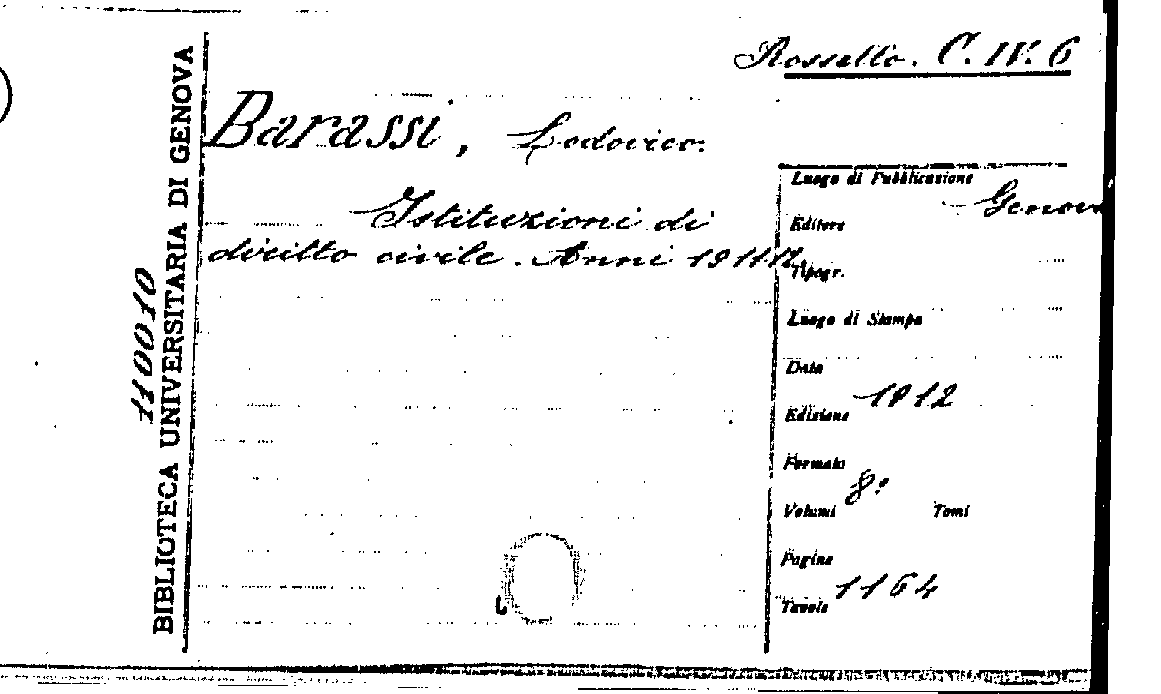 Rossello. C. IV. 6
Barassi, Lodovico.
Istituzioni di
diritto civile. Anni 1911-12.
Luogo di Pubblicazione Genova
Editore
Tipogr.
Luogo di Stampa
Data 1912
Edizione
Formato 8°
Volumi Tomi
Pagine 1164
Tavole
BIBLIOTECA UNIVERSITARIA DI GENOVA
110010